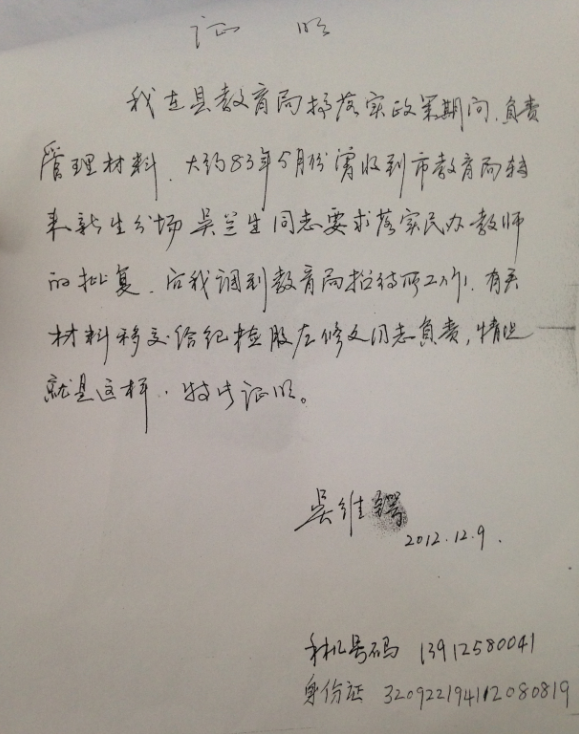 证 明
我在县教育局搞落实政策期间，负责
管理材料，大约83年5月份曾收到市教育局转
来新生分场吴兰生同志要求落实民办教师
的批复，后我调到教育局招待所工作，有关
材料移交给纪检股左修文同志负责，情况
就是这样，特此证明。
吴维
2012.12.9.
手机号码 13912580041
身份证 320922194112080819